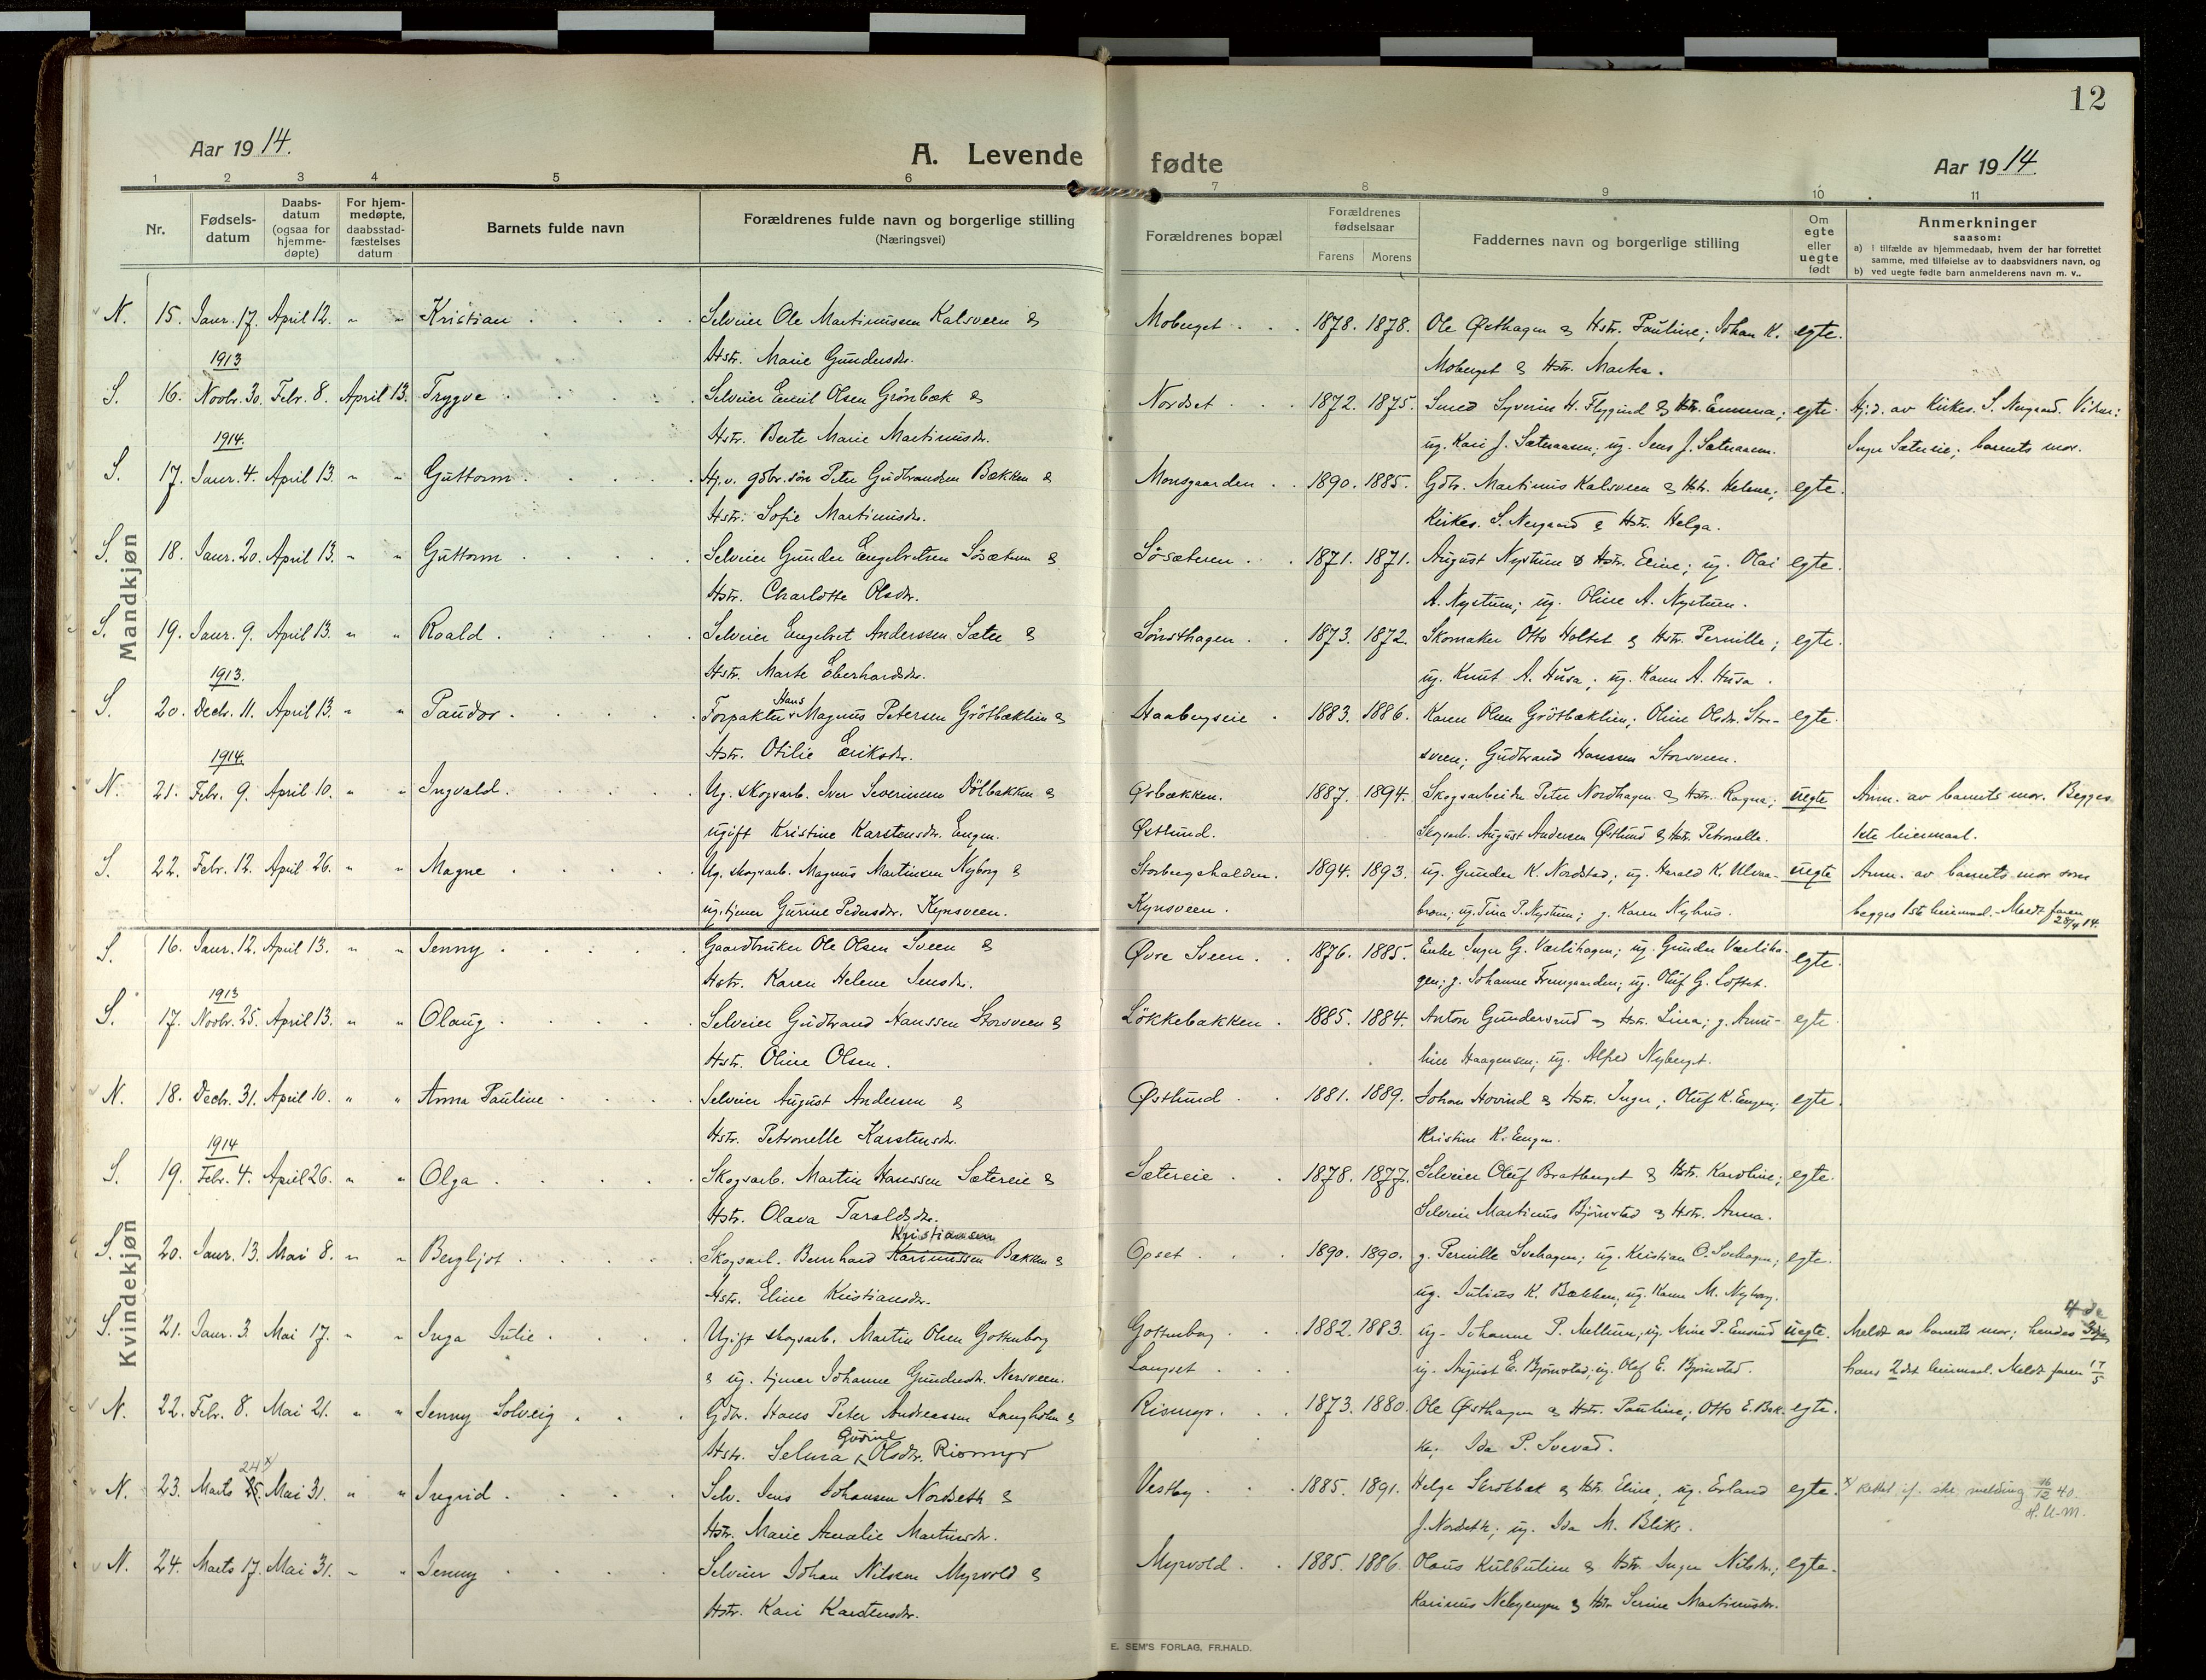 12
Aar 1914.
A. Levende fødte
Aar 1914.
1 2 3 4 5 6 7 8 9 10 11
Nr.
Fødsels-datum
Daabs-datum (ogsaa for hjemme-døpte)
For hjem-medøpte, daabsstad-fæstelses datum
Barnets fulde navn
Forældrenes fulde navn og borgerlige stilling
(Næringsvei)
Forældrenes bopæl
Forældrenes fødselsaar
Farens Morens
Faddernes navn og borgerlige stilling
Om egte eller uegte født
Anmerkninger
saasom:
a) i tilfælde av hjemmedaab, hvem der har forrettet
samme, med tilføielse av to daabsvidners navn, og
b) ved uegte fødte barn anmelderens navn m. v..
Mandkjøn
N. 15. Janr. 17. April 12. " " Kristian . . . . Selveier Ole Martinussen Kalsveen & Moberget . . . 1878. 1878. Ole Østhagen & Hstr. Pauline; Johan K. egte.
Hstr. Marie Gundersdr. Moberget & Hstr. Martea.
1913
S. 16. Novbr. 30. Febr. 8. April 13. Trygve . . . . Selveier Emil Olsen Grönbæk & Nordset . . . 1872. 1875. Smed Syverin H. Flygind & Hstr. Emma; egte. Hj.d. av Kirkes. S. Nergaard. Vidner:
Hstr. Berte Marie Martinusdr. ug. Kari J. Sæteraasen; ug. Jens J. Sæteraasen. Inger Sætereie; barnets mor.
1914.
S. 17. Janr. 4. April 13. " " Guttorm . . . . Hj.v. gdbr.søn Peter Gudbrandsen Bækken & Monsgaarden . . 1890. 1885. Gdbr. Martinus Kalsveen & Hstr. Helene; egte.
Hstr. Sofie Martinusdr. Kirkes. S. Nergaard & Hstr. Helga.
S. 18. Janr. 20. April 13. " " Guttorm . . . . Selveier Gunder Engebretsen Sösæteren & Sösæteren . . 1871. 1871. August Nystuen & Hstr. Eline; ug. Olai egte.
Hstr. Charlotte Olsdr. A. Nystuen; ug. Oline A. Nystuen.
S. 19. Janr. 9. April 13. " " Roald . . . . Selveier Engebret Anderssen Sæter & Sönsthagen . . 1873. 1872. Skomaker Otto Holtet & Hstr. Pernille; egte.
Hstr. Marte Eberhardsdr. ug. Knut A. Husa; ug. Karen A. Husa.
1913.
S. 20. Decbr. 11. April 13. " " Paudor . . . . Forpakter Hans Magnus Petersen Grötbæklien & Haabergseie . 1883. 1886. Karen Olsen Grötbæklien; Oline Olsdr. Stor- egte.
Hstr. Otilie Eriksdr. sveen; Gudbrand Hanssen Storsveen.
1914.
N. 21. Febr. 9. April 10. " " Ingvald . . . . Ug. skogsarb. Iver Severinsen Dölbakken & Örbækken. 1887. 1894. Skogsarbeider Peter Nordhagen & Hstr. Ragna; uegte Anm. av barnets mor. Begges
ugift Kristine Karstensdr. Engen. Østlund. Skogsarb. August Andersen Østlund & Hstr. Petronelle. 1ste leiermaal.
S. 22. Febr. 12. April 26. " " Magne . . . . Ug. skogsarb. Magnus Martinsen Nyborg & Storbergshalden. 1894. 1893. ug. Gunder K. Nordstad; ug. Harald K. Ulvaa- uegte Anm. av barnets mor som
ug. tjener Gurine Pedersdr. Kynsveen. Kynsveen. broen; ug. Tina P. Nystuen; g. Karen Nyhus. begges 1ste leiermaal. – Meldt faren 28/4 14.
Kvindekjøn
S. 16. Janr. 12. April 13. " " Jenny . . . . Gaardbruker Ole Olsen Sveen & Øvre Sveen . . 1876. 1885. Enke Inger G. Værlihagen; ug. Gunder Værliha- egte.
Hstr. Karen Helene Jensdr. gen; g. Johanne Fremgaarden; ug. Oluf G. Loftet.
1913
S. 17. Novbr. 25. April 13. " " Olaug . . . . Selveier Gudbrand Hanssen Storsveen & Lökkebakken . 1885. 1884. Anton Gundersrud & Hstr. Lina; g. Anne- egte.
Hstr. Oline Olsen. line Haagensen; ug. Alfred Nyberget.
N. 18. Decbr. 31. April 10. " " Anna Pauline . . . Selveier August Andersen & Østlund . . 1881. 1889. Johan Hovind & Hstr. Inger; Oluf K. Engen; egte.
Hstr. Petronelle Karstensdr. Kristine K. Engen.
1914
S. 19. Febr. 4. April 26. " " Olga . . . . Skogsarb. Martin Hanssen Sætereie & Sætereie . . 1878. 1877. Selveier Oluf Bratberget & Hstr. Karoline; egte.
Hstr. Olava Taraldsdr. Selveier Martinus Björnstad & Hstr. Anna.
S. 20. Janr. 13. Mai 8. " " Bergljot . . . . Skogsarb. Bernhard Karinussen Kristiansen Bækken & Opset . . . 1890. 1890. g. Pernille Svehagen; ug. Kristian O. Svehagen; egte.
Hstr. Eline Kristiansdr. ug. Julius K. Bækken; ug. Karen M. Nyborg.
S. 21. Janr. 3. Mai 17. " " Inga Julie . . . Ugift skogsarb. Martin Olsen Gottenborg Gottenborg . . . 1882. 1883. ug. Johanne P. Mellum; ug. Mina P. Emsrud uegte. Meldt av barnets mor; hendes 4de
& ug. tjener Johanne Gundersdr. Nersveen. Langset . . . ug. August E. Björnstad; ug. Olaf E. Björnstad. hans 2det leiermaal. Meldt faren 17/5
N. 22. Febr. 8. Mai 21. " " Jenny Solveig . . . Gdbr. Hans Peter Andreassen Langholen & Rismyr . . . 1873. 1880. Ole Østhagen & Hstr. Pauline; Otto E. Bak- egte.
Hstr. Selma Gudine Olsdr. Rismyr ke; Ida P. Svevad.
N. 23. Marts 25. 24 x) Mai 31. " " Ingrid . . . . Selv. Jens Johansen Nordseth & Vestby . . . 1885. 1891. Helge Skrökbæk & Hstr. Eline; ug. Erland egte. x) Rettet if. ske. melding 16/12 40.
Hstr. Marie Amalie Martinsdr. J. Nordseth; ug. Ida M. Bliks. H. U-M.
N. 24. Marts 17. Mai 31. " " Jenny . . . . Selveier Johan Nilssen Myrvold & Myrvold . . 1885. 1886. Olaus Kulbulien & Hstr. Inger Nilsdr.; egte.
Hstr. Kari Karstensdr. Karinus Nebyengen & Hstr. Serine Martinusdr.
E. SEM'S FORLAG, FR.HALD.